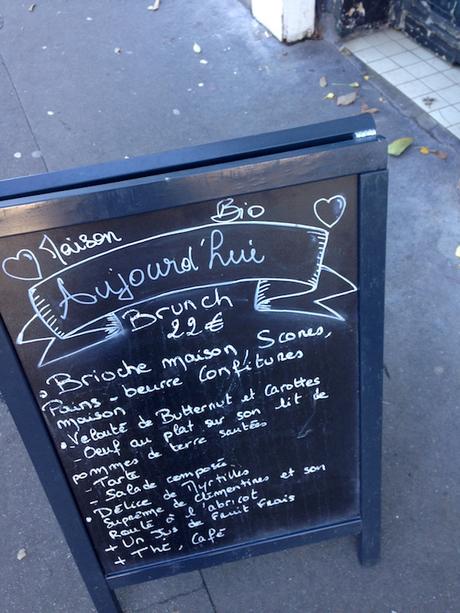 Maison Bio
Aujourd'hui
Brunch
22€
• Brioche maison Scones,
Pains - beurre Confitures
maison
• Velouté de Butternut et Carottes
- Oeuf au plat sur son lit de
pommes de terre sautées
- Tarte
- Salade composé
• Délice de Myrtilles
Suprême de Clémentines et son
Roulé à l'abricot
+ Un Jus de Fruit Frais
+ Thé, Café